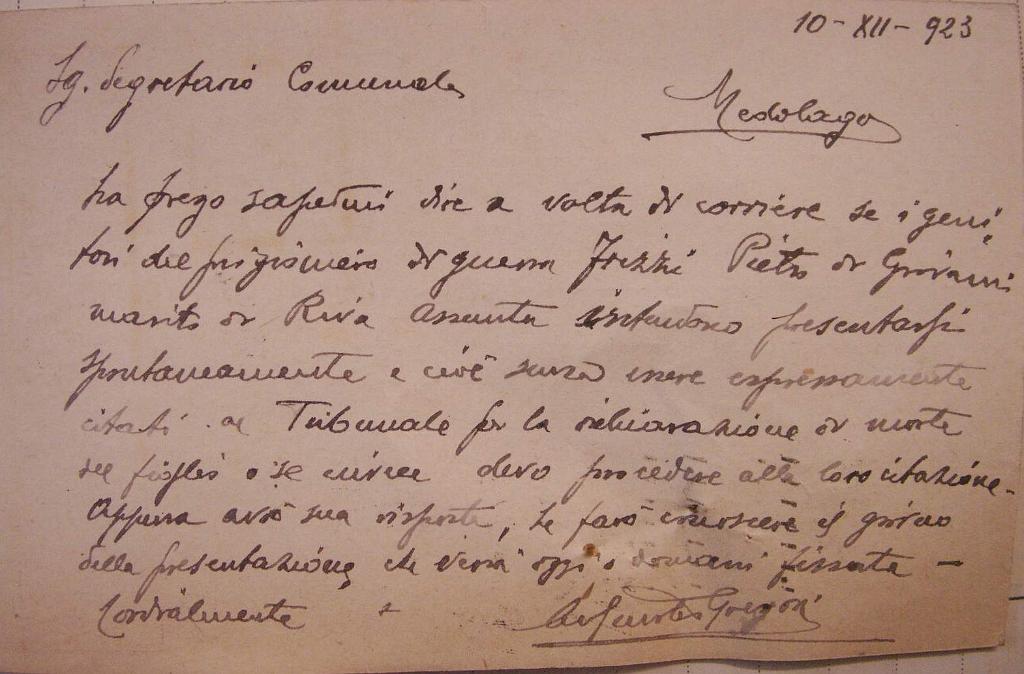 10-XII-923
Sg. Segretario Comunale
Medolago
La prego sapermi dire a volta di corriere se i geni
tori del prigioniero di guerra Frizzi Pietro di Giovanni
marito di Riva Assunta intendono presentarsi
spontaneamente e cioè senza essere espressamente
citati al Tribunale per la dichiarazione di morte
del figlio o se invece devo procedere alla loro citazione.
Appena avrò sua risposta, Le farò conoscere il giorno
della presentazione, che verrà oggi o domani fissata –
Cordialmente
Gregori